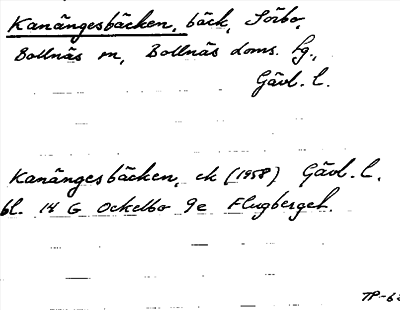 Kanängesbäcken, bäck, Sörbo,
Bollnäs sn, Bollnäs doms. fg.,
Gävl. l.
Kanängesbäcken, ek (1958) Gävl. l.
bl. 14 G Ockelbo 9e Flugberget.
TP-62